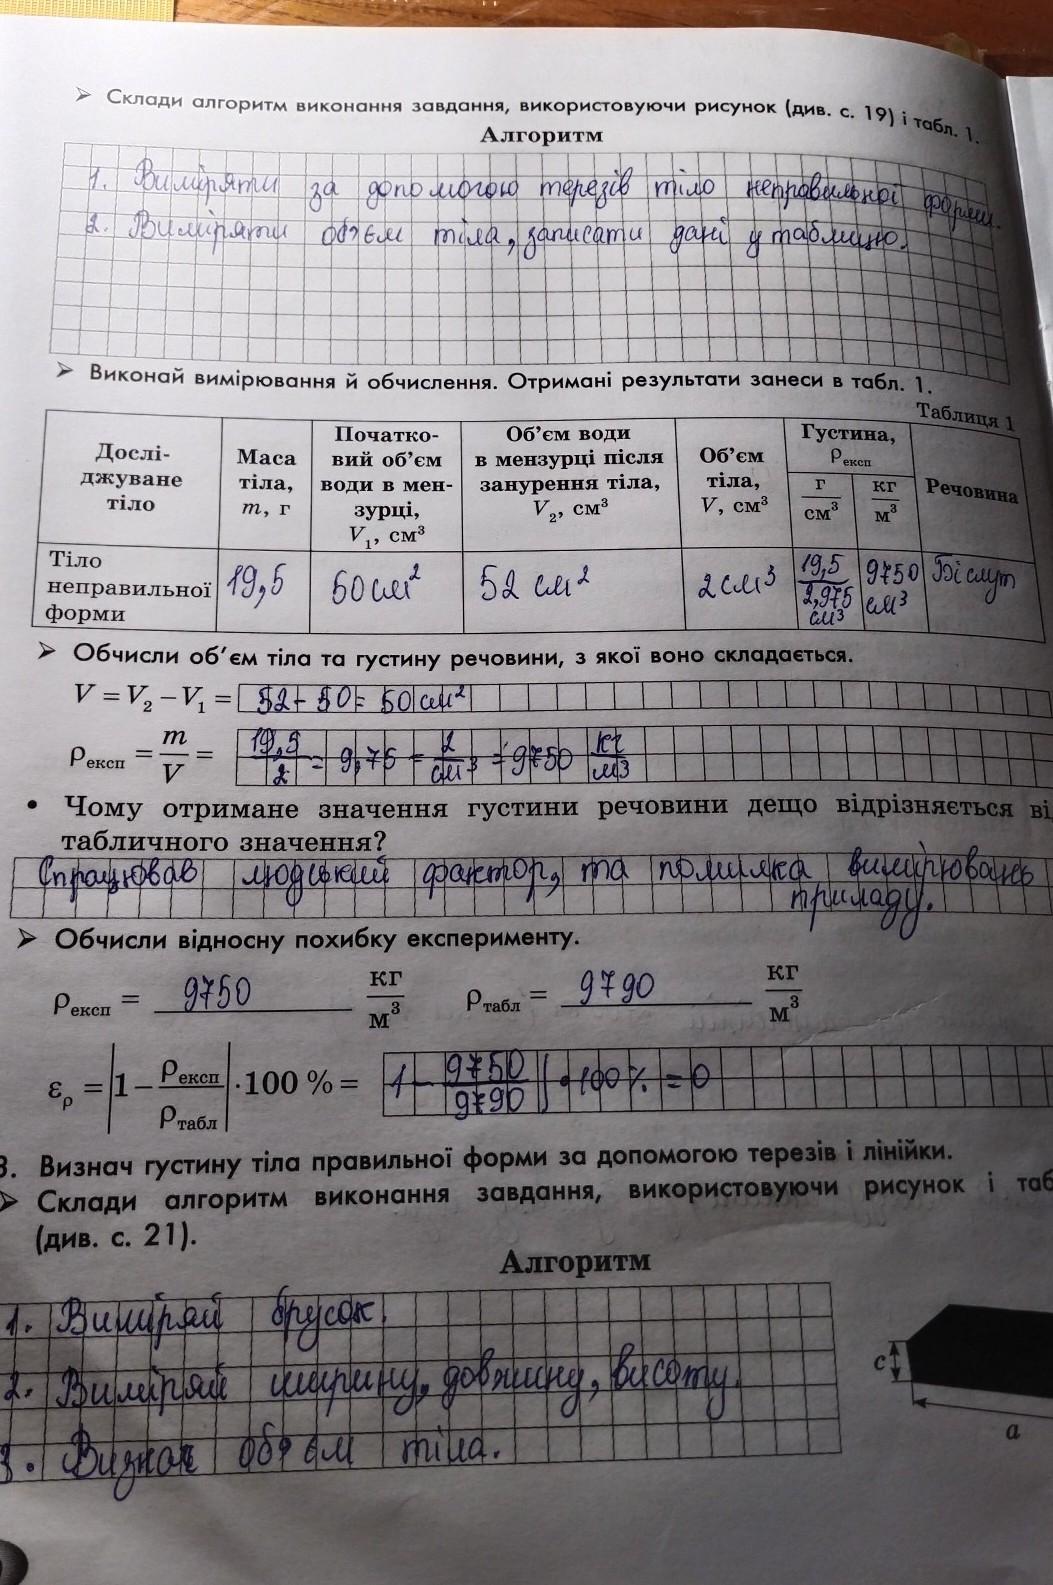 ➤ Склади алгоритм виконання завдання, використовуючи рисунок (див. с. 19) і табл. 1.
Алгоритм
1. Виміряти за допомогою терезів тіло неправильної форми.
2. Виміряти обэєм тіла, записати дані у таблицю.
➤ Виконай вимірювання й обчислення. Отримані результати занеси в табл. 1.
Таблиця 1
Дослі-
джуване
тіло
Маса
тіла,
m, г
Початко-
вий об’єм
води в мен-
зурці,
V₁, см³
Об’єм води
в мензурці після
занурення тіла,
V₂, см³
Об’єм
тіла,
V, см³
Густина,
ρексп
г/см³
кг/м³
Речовина
Тіло
неправильної
форми
19,5
50см²
52 см²
2см³
19,5
2,975
см³
9750
см³
Бісмут
➤ Обчисли об’єм тіла та густину речовини, з якої воно складається.
V = V₂ – V₁ = 52– 50= 50 см²
ρексп = m/V = 19,5/2 = 9,75 = 2/см³ = 9750 кг/м³
• Чому отримане значення густини речовини дещо відрізняється ві
табличного значення?
Спрацював людський фактор, та помилка вимірювань
приладу.
➤ Обчисли відносну похибку експерименту.
ρексп = 9750 кг/м³ ρтабл = 9790 кг/м³
ερ = |1 – ρексп/ρтабл| · 100 % = 1 – 9750/9790 | • 100 % = 0
3. Визнач густину тіла правильної форми за допомогою терезів і лінійки.
➤ Склади алгоритм виконання завдання, використовуючи рисунок і таб
(див. с. 21).
Алгоритм
1. Виміряй брусок.
2. Виміряй ширину, довжину, висоту.
3. Визнач обэєм тіла.
c
a